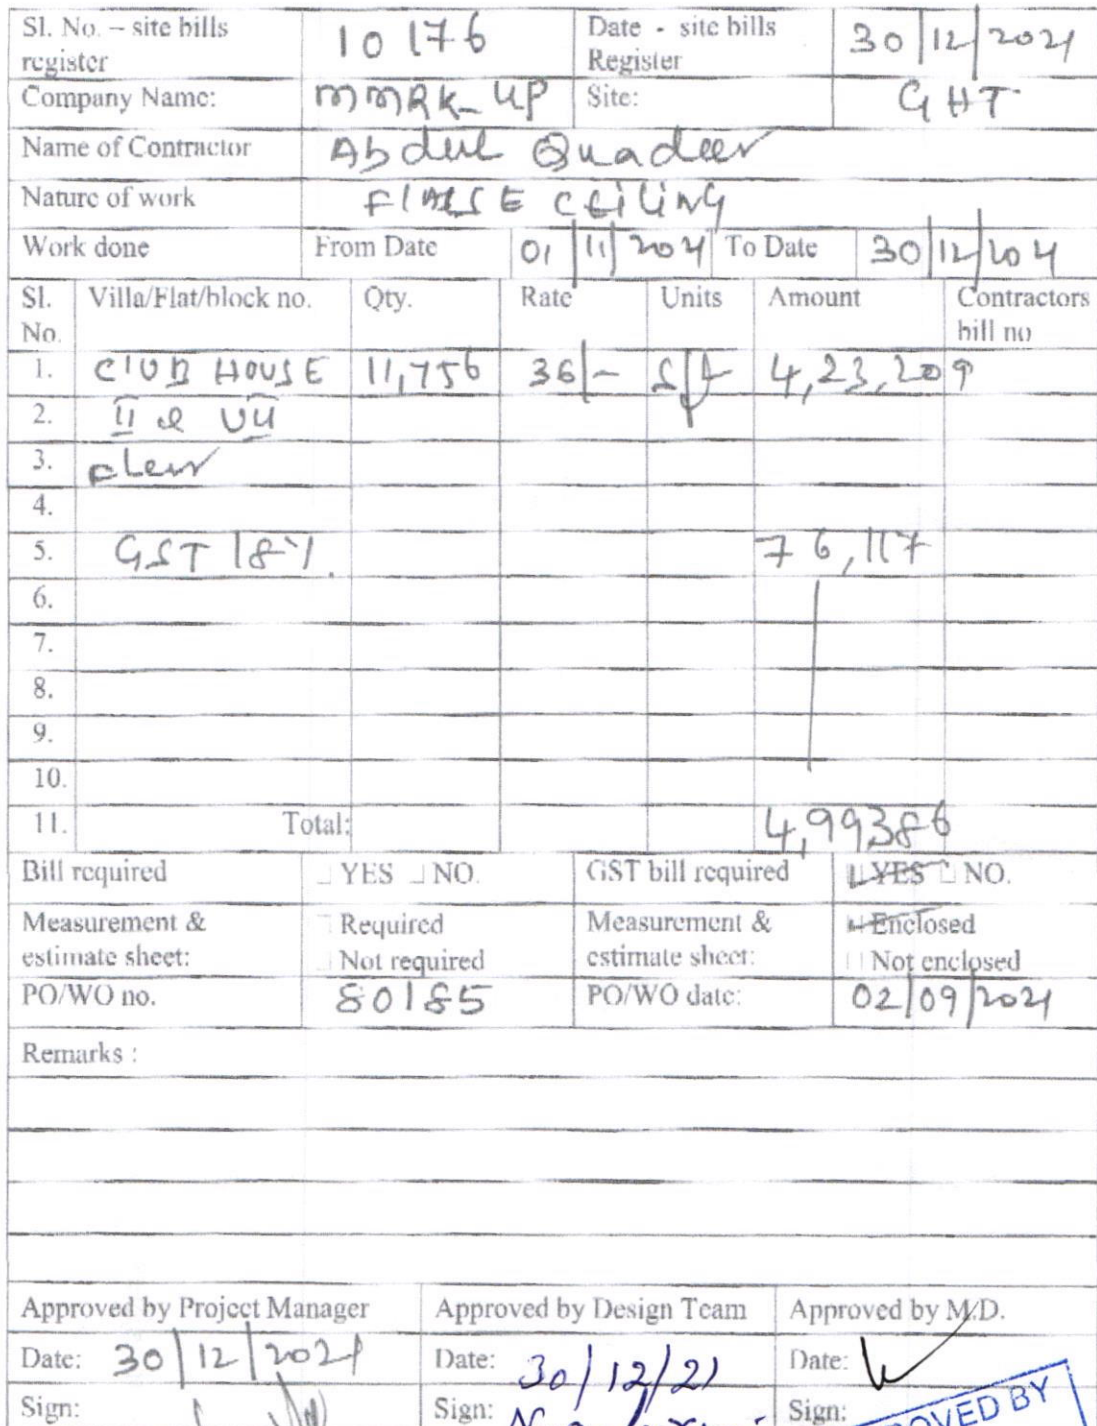 Sl. No. – site bills register 10176 Date - site bills Register 30/12/2021
Company Name: MMRK_UP Site: GHT
Name of Contractor Abdul Quadeer
Nature of work FlALSE CEiLiNG
Work done From Date 01/11/2021 To Date 30/12/2021
Sl. No. Villa/Flat/block no. Qty. Rate Units Amount Contractors bill no
1. ClUB HOUSE 11,756 36/- sft 4,23,209
2. II &
3.
4.
5. GST 18% 76,117
6.
7.
8.
9.
10.
11. Total: 4,99386
Bill required YES NO. GST bill required YES NO.
Measurement & estimate sheet: Required Not required Measurement & estimate sheet: Enclosed Not enclosed
PO/WO no. 80185 PO/WO date: 02/09/2021
Remarks :
Approved by Project Manager Approved by Design Team Approved by M.D.
Date: 30/12/2021 Date: 30/12/21 Date:
Sign: Sign: Sign: